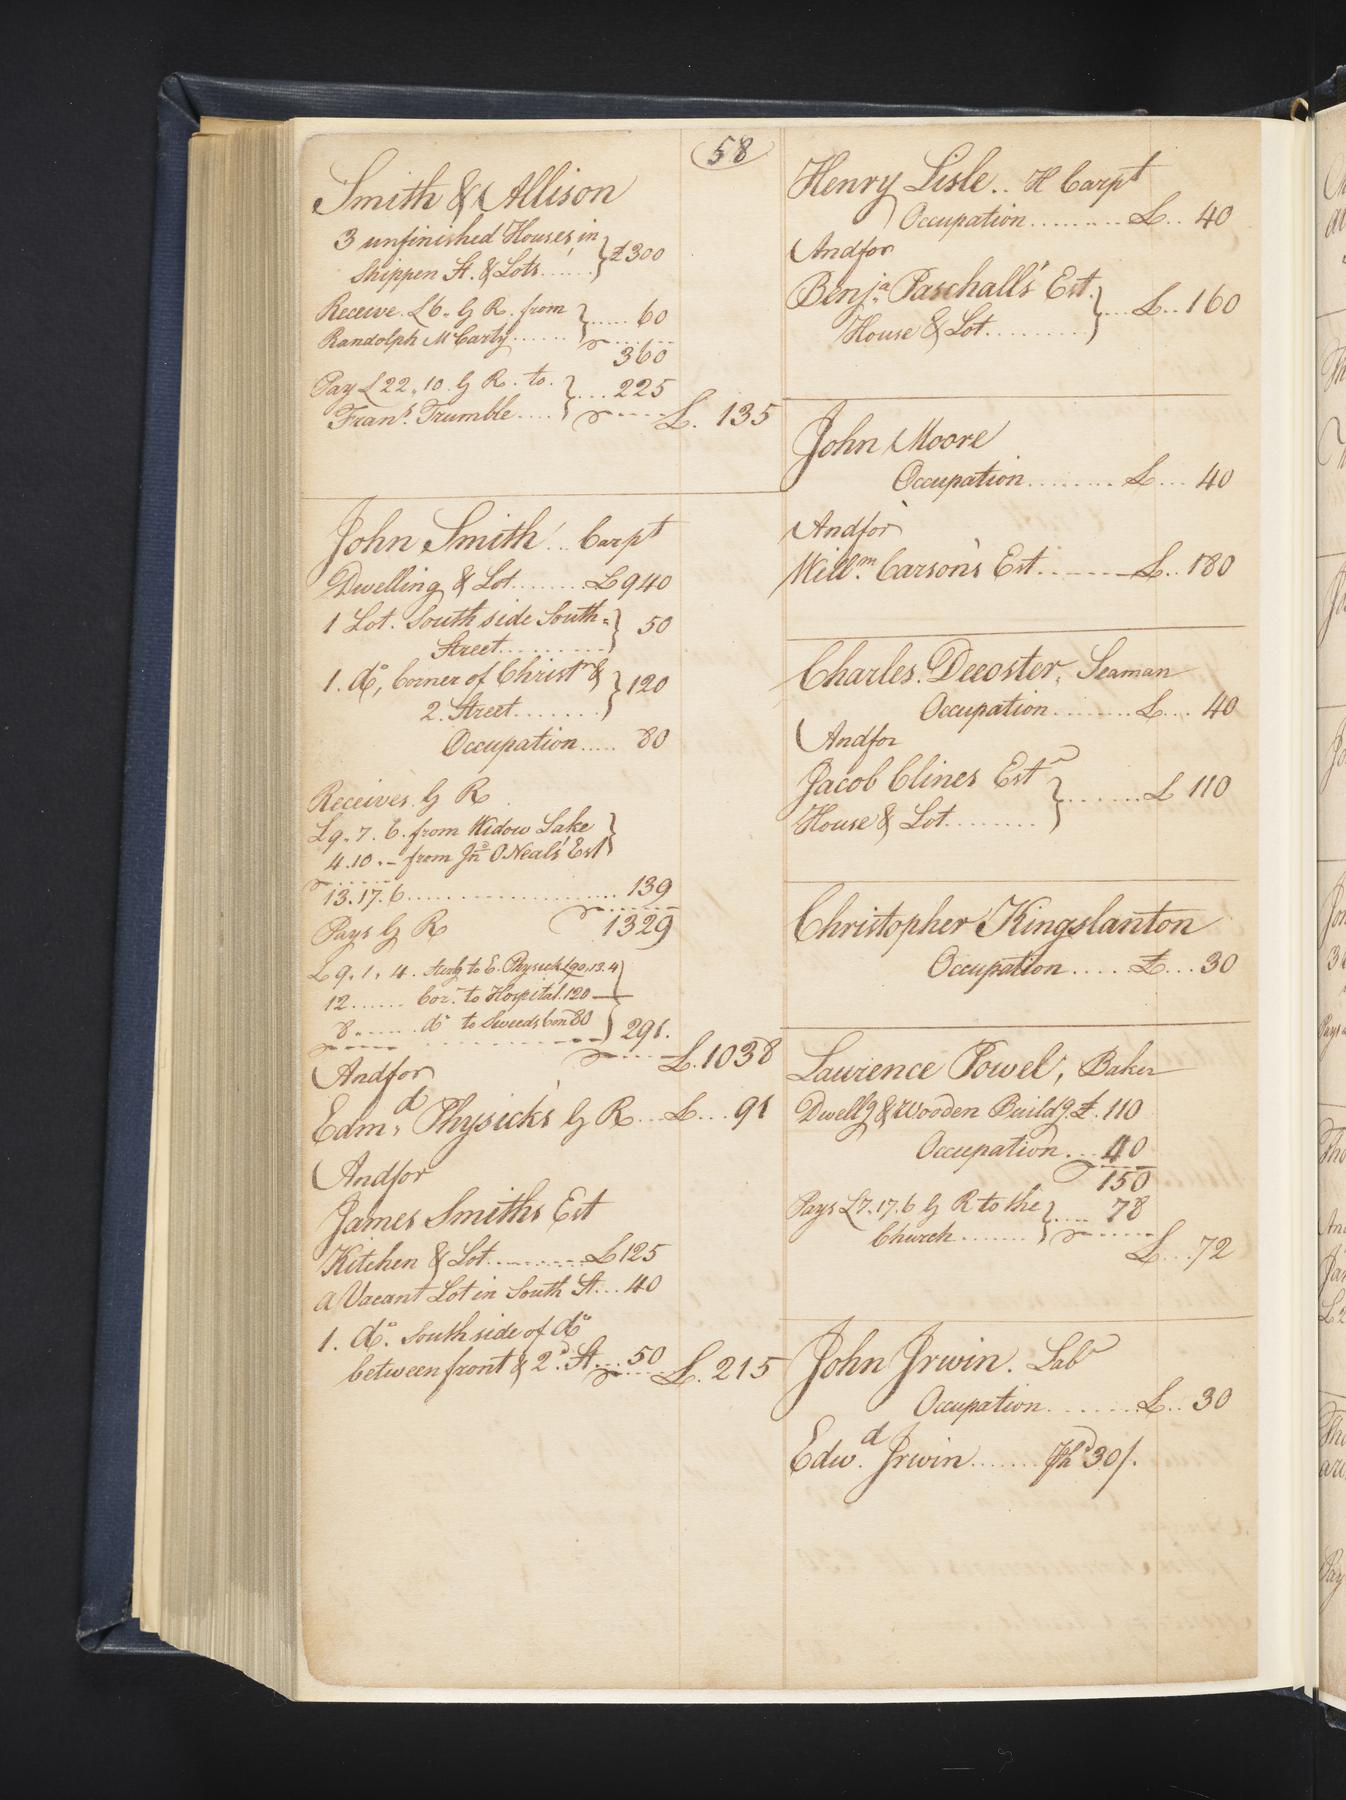 58
Smith & Allison
3 unfinished Houses in
Shippen St. & Lots...... £300
Receive. £6.. G R. from
Randolph McCarty....... ...... 60
360
Pay £22,,10. G R. to. .... 225
Frans. Trumble.... £. 135
John Smith... Carpt
Dwelling & Lot........ £940
1 Lot. South side South=
Street.......... 50
1. do, Corner of Christn &
2. Street........ 120
Occupation..... 80
Receives. G R.
£9. 7. 6. from Widow Lake
4.10.- from Jno ONeal's Est
13.17.6..................... 139
1329
Pays G R
£9. 1. 4. Sterlg to E. Physick £90.13.4
12...... Cor. to Hospital. 120 —
8...... do to Sweeds Con 80 291.
£. 1038
Andfor
Edmd, Physick's G R... £... 91
Andfor
James Smith's Est
Kitchen & Lot.......... £125
a Vacant Lot in South St... 40
1. do. South side of do
between front & 2d. St... 50 £. 215
Henry Lisle.. H Carpt
Occupation.......... £.. 40
Andfor
Benja. Paschall's Est.
House & Lot.......... .... £.. 160
John Moore
Occupation......... £... 40
Andfor
Willm. Carson's Est.......... £.. 180
Charles. Decoster, Seaman
Occupation......... £... 40
Andfor
Jacob Clines Est
House & Lot......... ........ £ 110
Christopher Kingslanton
Occupation..... £... 30
Laurence Powel, Baker
Dwellg & Wooden Buildg. £. 110
Occupation... 40
150
Pays £7.17.6 G R to the .... 78
Church.......
£... 72
John Irwin. Labr
Occupation......... £.. 30
Edwd. Irwin....... Phd 30/.